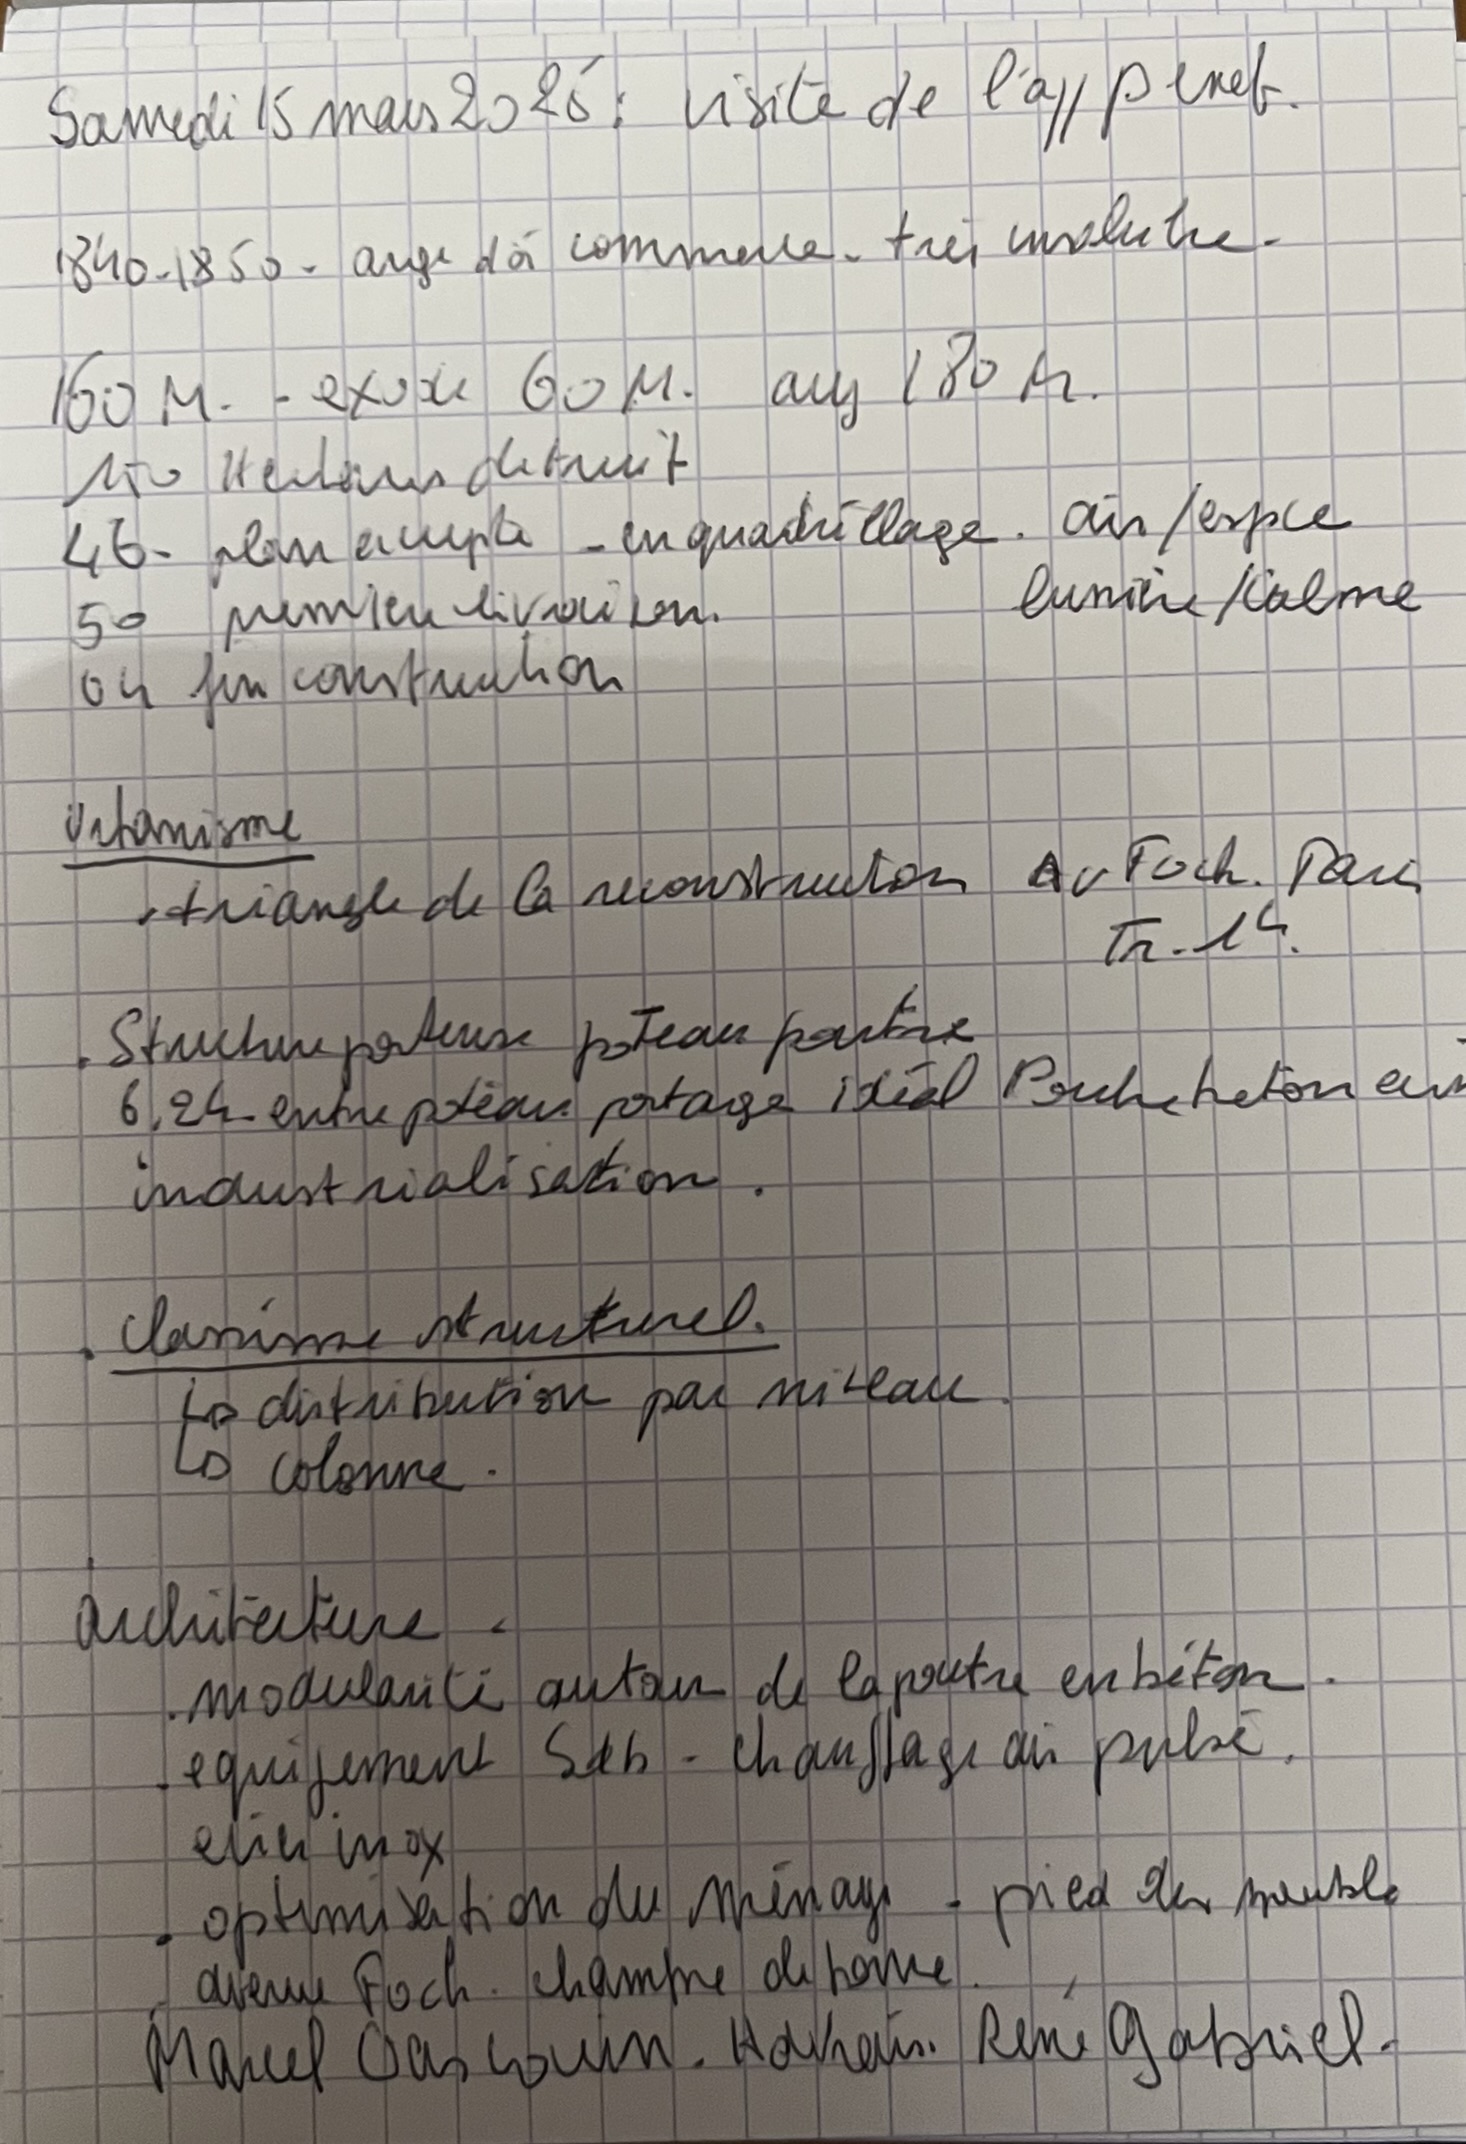 Samedi 15 mars 2025 : visite de l'app Perret.
1840-1850 - commerce - très insalubre -
160 M. - exode 60 M. auj 180 M.
150 Hectares détruit
46 - plan - en quadrillage . air / espce
50 première livraison. lumière / calme
64 fin construction
Urbanisme
. triangle de la reconstruction Av Foch. Paris
Fr. 1h.
. Structure porteuse poteau poutre
6,24 entre poteau portage idéal Poutre beton
industrialisation .
. Classisme structurel.
↳ distribution par niveau .
↳ colonne .
Architecture .
. modularité autour de la poutre en béton .
. equipement Sdb - chauffage air pulsé .
evier inox
. optimisation du ménage - pied des meuble
. avenue Foch . chambre de bonne .
Marcel Gascouin . René Gabriel .